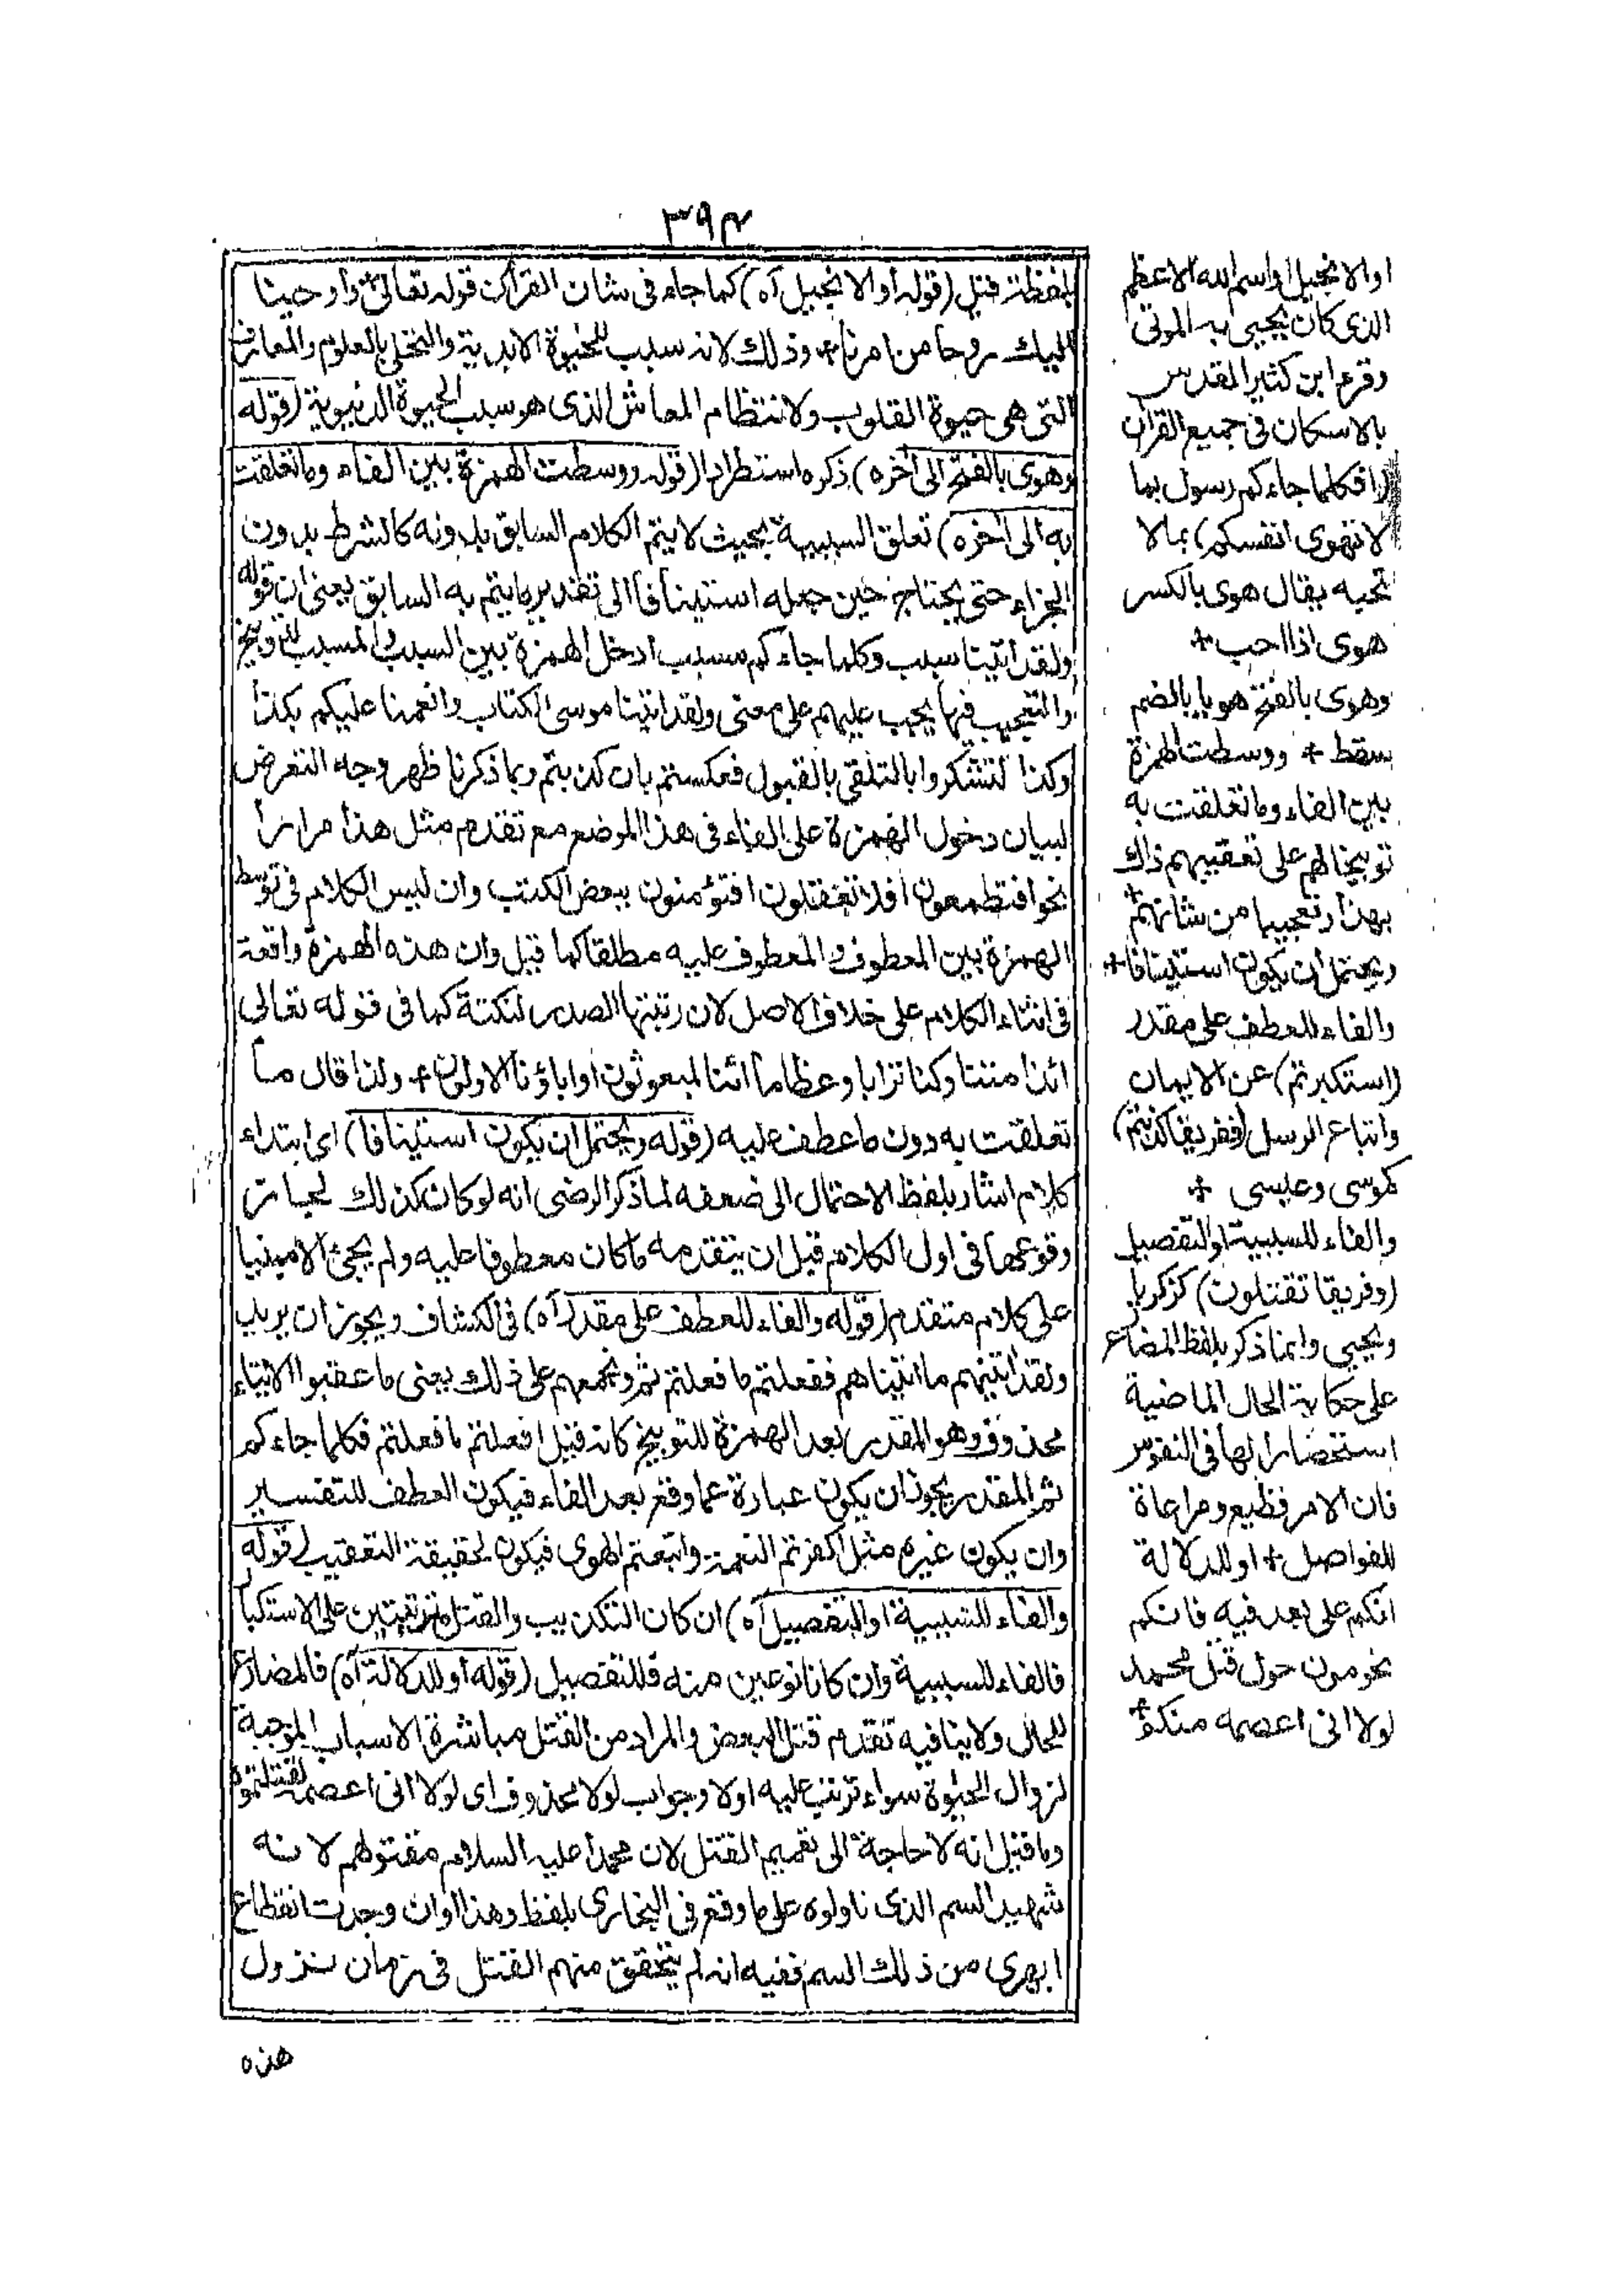 ٣٩٤
بلفظة قتل (قوله أو الانجيل آه) كما جاء فى شان القرآن قوله تعالى وأوحينا
اليك روحا من امرنا + وذلك لانه سبب للحيوة الابدية والتحلى بالعلوم والمعارف
التى هى حيوة القلوب ولانتظام المعاش الذى هو سبب الحيوة الدنيوية (قوله
وهوى بالفتح الى آخره) ذكره استطرادا (قوله ووسطت الهمزة بين الفاء وما تعلقت
به الى آخره) تعلق السببية بحيث لا يتم الكلام السابق بدونه كالشرط بدون
الجزاء حتى يحتاج حين جعله استينافا الى تقدير ما يتم به السابق يعنى ان قوله
ولقد آتينا سبب وكلما جاءكم مسبب ادخل الهمزة بين السبب والمسبب للتوبيخ
والتعجيب فيما يجب عليهم على معنى ولقد آتينا موسى الكتاب وانعمنا عليكم بكذا
وكذا لتشكروا بالتلقى بالقبول فعكستم بان كذبتم وبما ذكرنا ظهر وجه التعرض
لبيان دخول الهمزة على الفاء فى هذا الموضع مع تقدم مثل هذا مرارا
نحو افتطمعون أفلا تعقلون افتؤمنون ببعض الكتب وان ليس الكلام فى توسط
الهمزة بين المعطوف والمعطوف عليه مطلقا كما قيل وان هذه الهمزة واقعة
فى اثناء الكلام على خلاف الاصل لان رتبتها الصدر لنكتة كما فى قوله تعالى
ائذا متنا وكنا ترابا وعظاما ائنا لمبعوثون اواباؤنا الاولون + ولذا قال ما
تعلقت به دون ما عطف عليه (قوله ويحتمل ان يكون استينافا) اى ابتداء
كلام اشار بلفظ الاحتمال الى ضعفه لما ذكر الرضى انه لو كان كذلك لجاز
وقوعها فى اول الكلام قبل ان يتقدمه ما كان معطوفا عليه ولم يجئ الا مبنيا
على كلام متقدم (قوله والفاء للعطف على مقدر آه) فى الكشاف ويجوز ان يريد
ولقد آتينهم ما آتيناهم ففعلتم ما فعلتم ثم وبخهم على ذلك يعنى ما عقبوا الايتاء
محذوف وهو المقدر بعد الهمزة للتوبيخ كانه قيل افعلتم ما فعلتم فكلما جاءكم
ثم المقدر يجوز ان يكون عبارة عما وقع بعد الفاء فيكون العطف للتفسير
وان يكون غيره مثل اكفرتم النعمة واتبعتم الهوى فيكون لحقيقة التعقيب (قوله
والفاء للسببية او التفصيل آه) ان كان التكذيب والقتل مرتبتين على الاستكبار
فالفاء للسببية وان كانا نوعين منه فللتفصيل (قوله أو للدلالة آه) فالمضارع
للحال ولا ينافيه تقدم قتل البعض والمراد من القتل مباشرة الاسباب الموجبة
لزوال الحيوة سواء ترتب عليه اولا وجواب لولا محذوف اى لولا انى اعصمه لقتلتموه
وما قيل انه لا حاجة الى تعميم القتل لان محمدا عليه السلام مقتولهم لانه
شهيد السم الذى ناولوه على ما وقع فى البخارى بلفظ وهذا اوان وجدت انقطاع
ابهرى من ذلك السم ففيه انه لم يتحقق منهم القتل فى زمان نزول
هذه
او الانجيل او اسم الله الاعظم
الذى كان يحيى به الموتى
وقرء ابن كثير القدس
بالاسكان فى جميع القرآن
(افكلما جاءكم رسول بما
لا تهوى انفسكم) بما لا
تحبه يقال هوى بالكسر
هوى اذا احب +
وهوى بالفتح هويا بالضم
سقط + ووسطت الهمزة
بين الفاء وما تعلقت به
توبيخا لهم على تعقيبهم ذاك
بهذا وتعجيبا من شانهم +
ويحتمل ان يكون استينافا +
والفاء للعطف على مقدر
(استكبرتم) عن الايمان
واتباع الرسل (ففريقا كذبتم)
كموسى وعيسى +
والفاء للسببية او التفصيل
(وفريقا تقتلون) كزكريا
ويحيى وانما ذكر بلفظ المضارع
على حكاية الحال الماضية
استحضارا لها فى النفوس
فان الامر فظيع ومراعاة
للفواصل + او للدلالة
انكم على بعد فيه فانكم
تحومون حول قتل محمد
لولا انى اعصمه منكم +